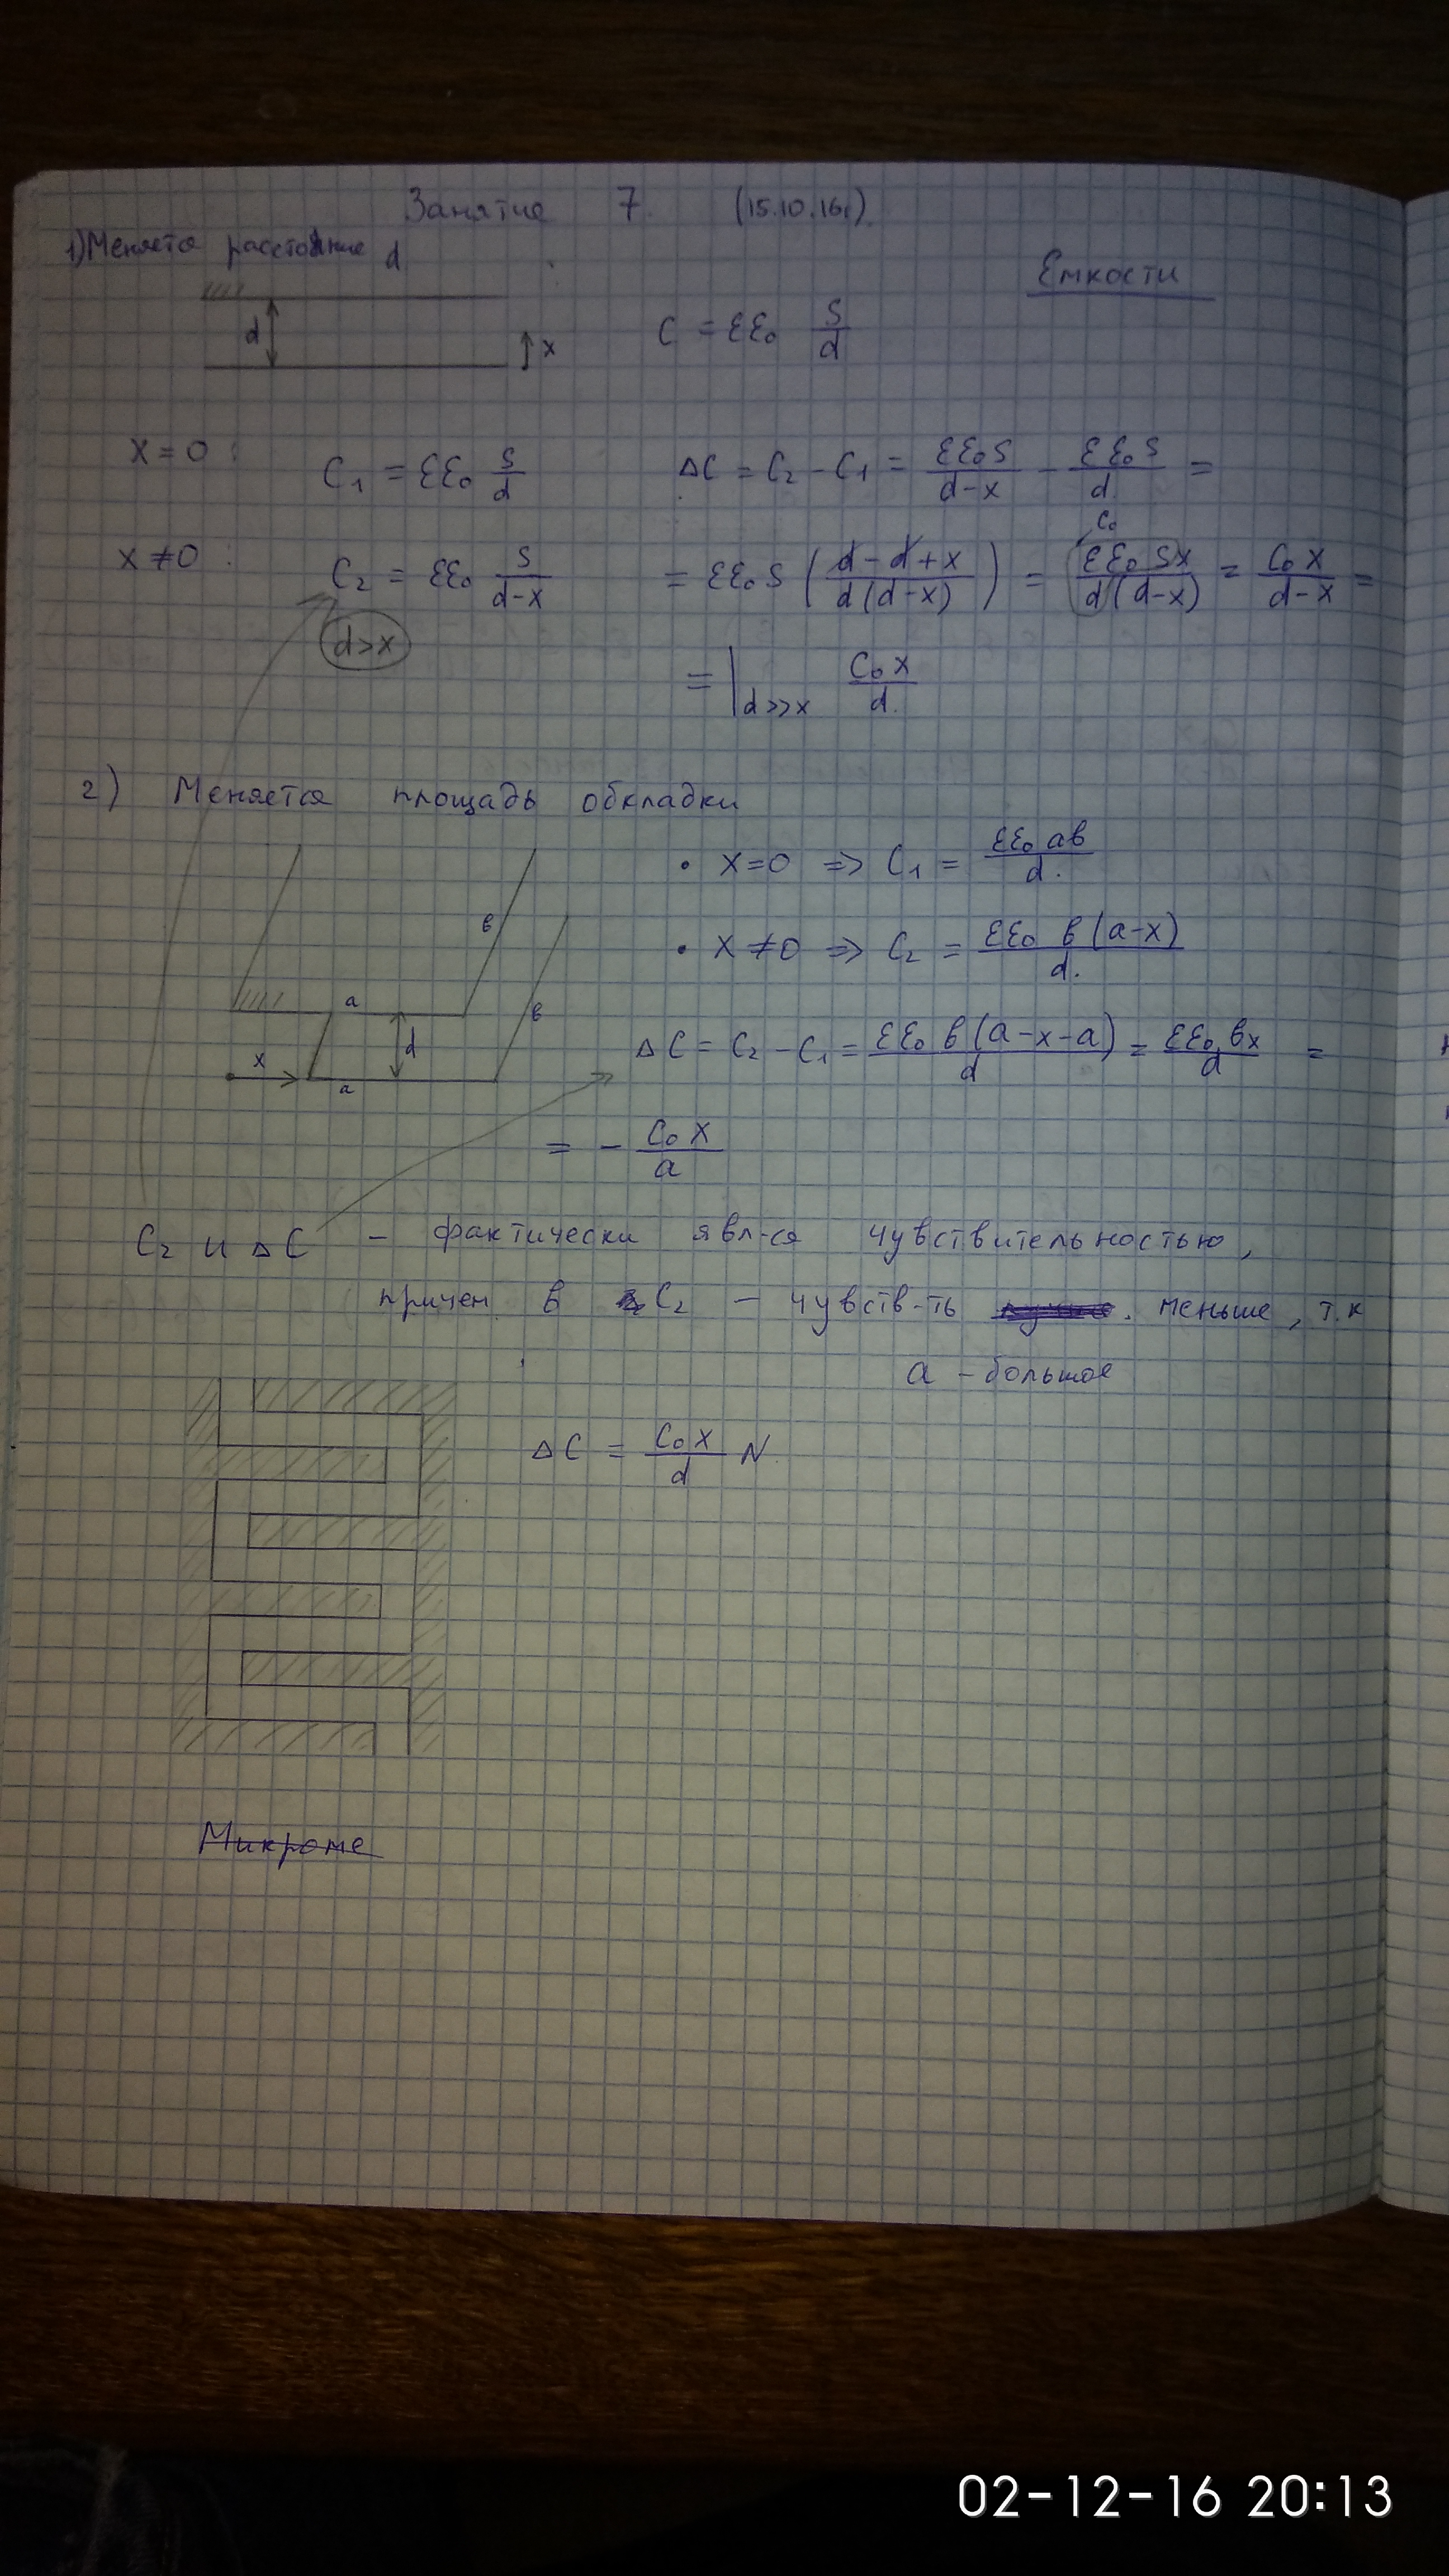 Занятие 7 (15.10.16г)
1) Меняется расстояние d
Емкости
d
x
C = εε₀ S/d
x = 0 :
C₁ = εε₀ S/d
ΔC = C₂ - C₁ = εε₀S/(d-x) - εε₀S/d =
x ≠ 0 :
C₂ = εε₀ S/(d-x)
d>x
C₀
= εε₀S ((d-d+x)/(d(d-x))) = εε₀Sx/(d(d-x)) = C₀x/(d-x) =
= |d>>x C₀x/d.
2) Меняется площадь обкладки
в
в
a
d
x
a
• x=0 => C₁ = εε₀ ав/d.
• x≠0 => C₂ = εε₀ в(a-x)/d.
ΔC = C₂ - C₁ = εε₀ в(a-x-a)/d = εε₀ вx/d =
= - C₀x/a
C₂ и ΔC - фактически явл-ся чувствительностью,
причем в C₂ - чувств-ть меньше, т.к
a - большое
ΔC = C₀x/d N
Микроме
02-12-16 20:13